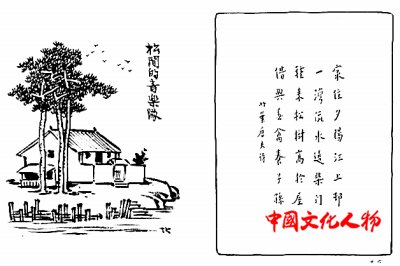 松間的音樂隊
家住夕陽江上邨
一灣流水遶柴門
種來松樹高於屋
借與春禽養子孫
葉唐夫詩
中國文化人物
TK